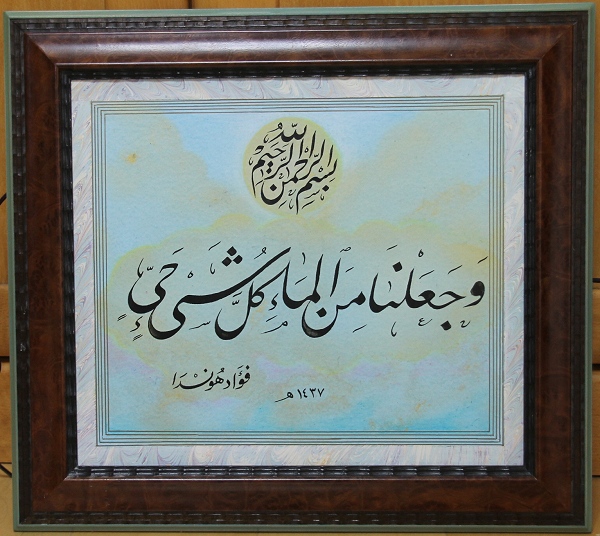 بِسْمِ اللّٰهِ الرَّحْمٰنِ الرَّحِيْمِ
وَجَعَلْنَا مِنَ الْمَاءِ كُلَّ شَىْءٍ حَىٍّ
فؤَاد هُونْدَا
١٤٣٧ هـ